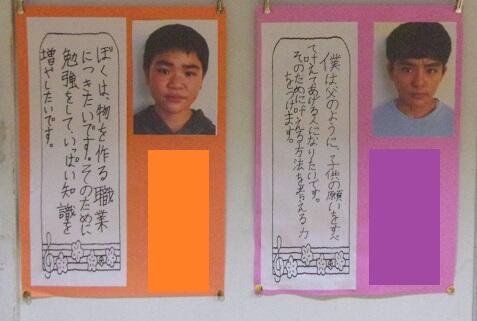 ぼくは、物を作る職業
につきたいです。そのために
勉強をして、いっぱい知識を
増やしたいです。
僕は父のように、子供の願いをすべ
て叶えてあげる人になりたいです。
そのために叶えれる方法を考える力
をつけます。